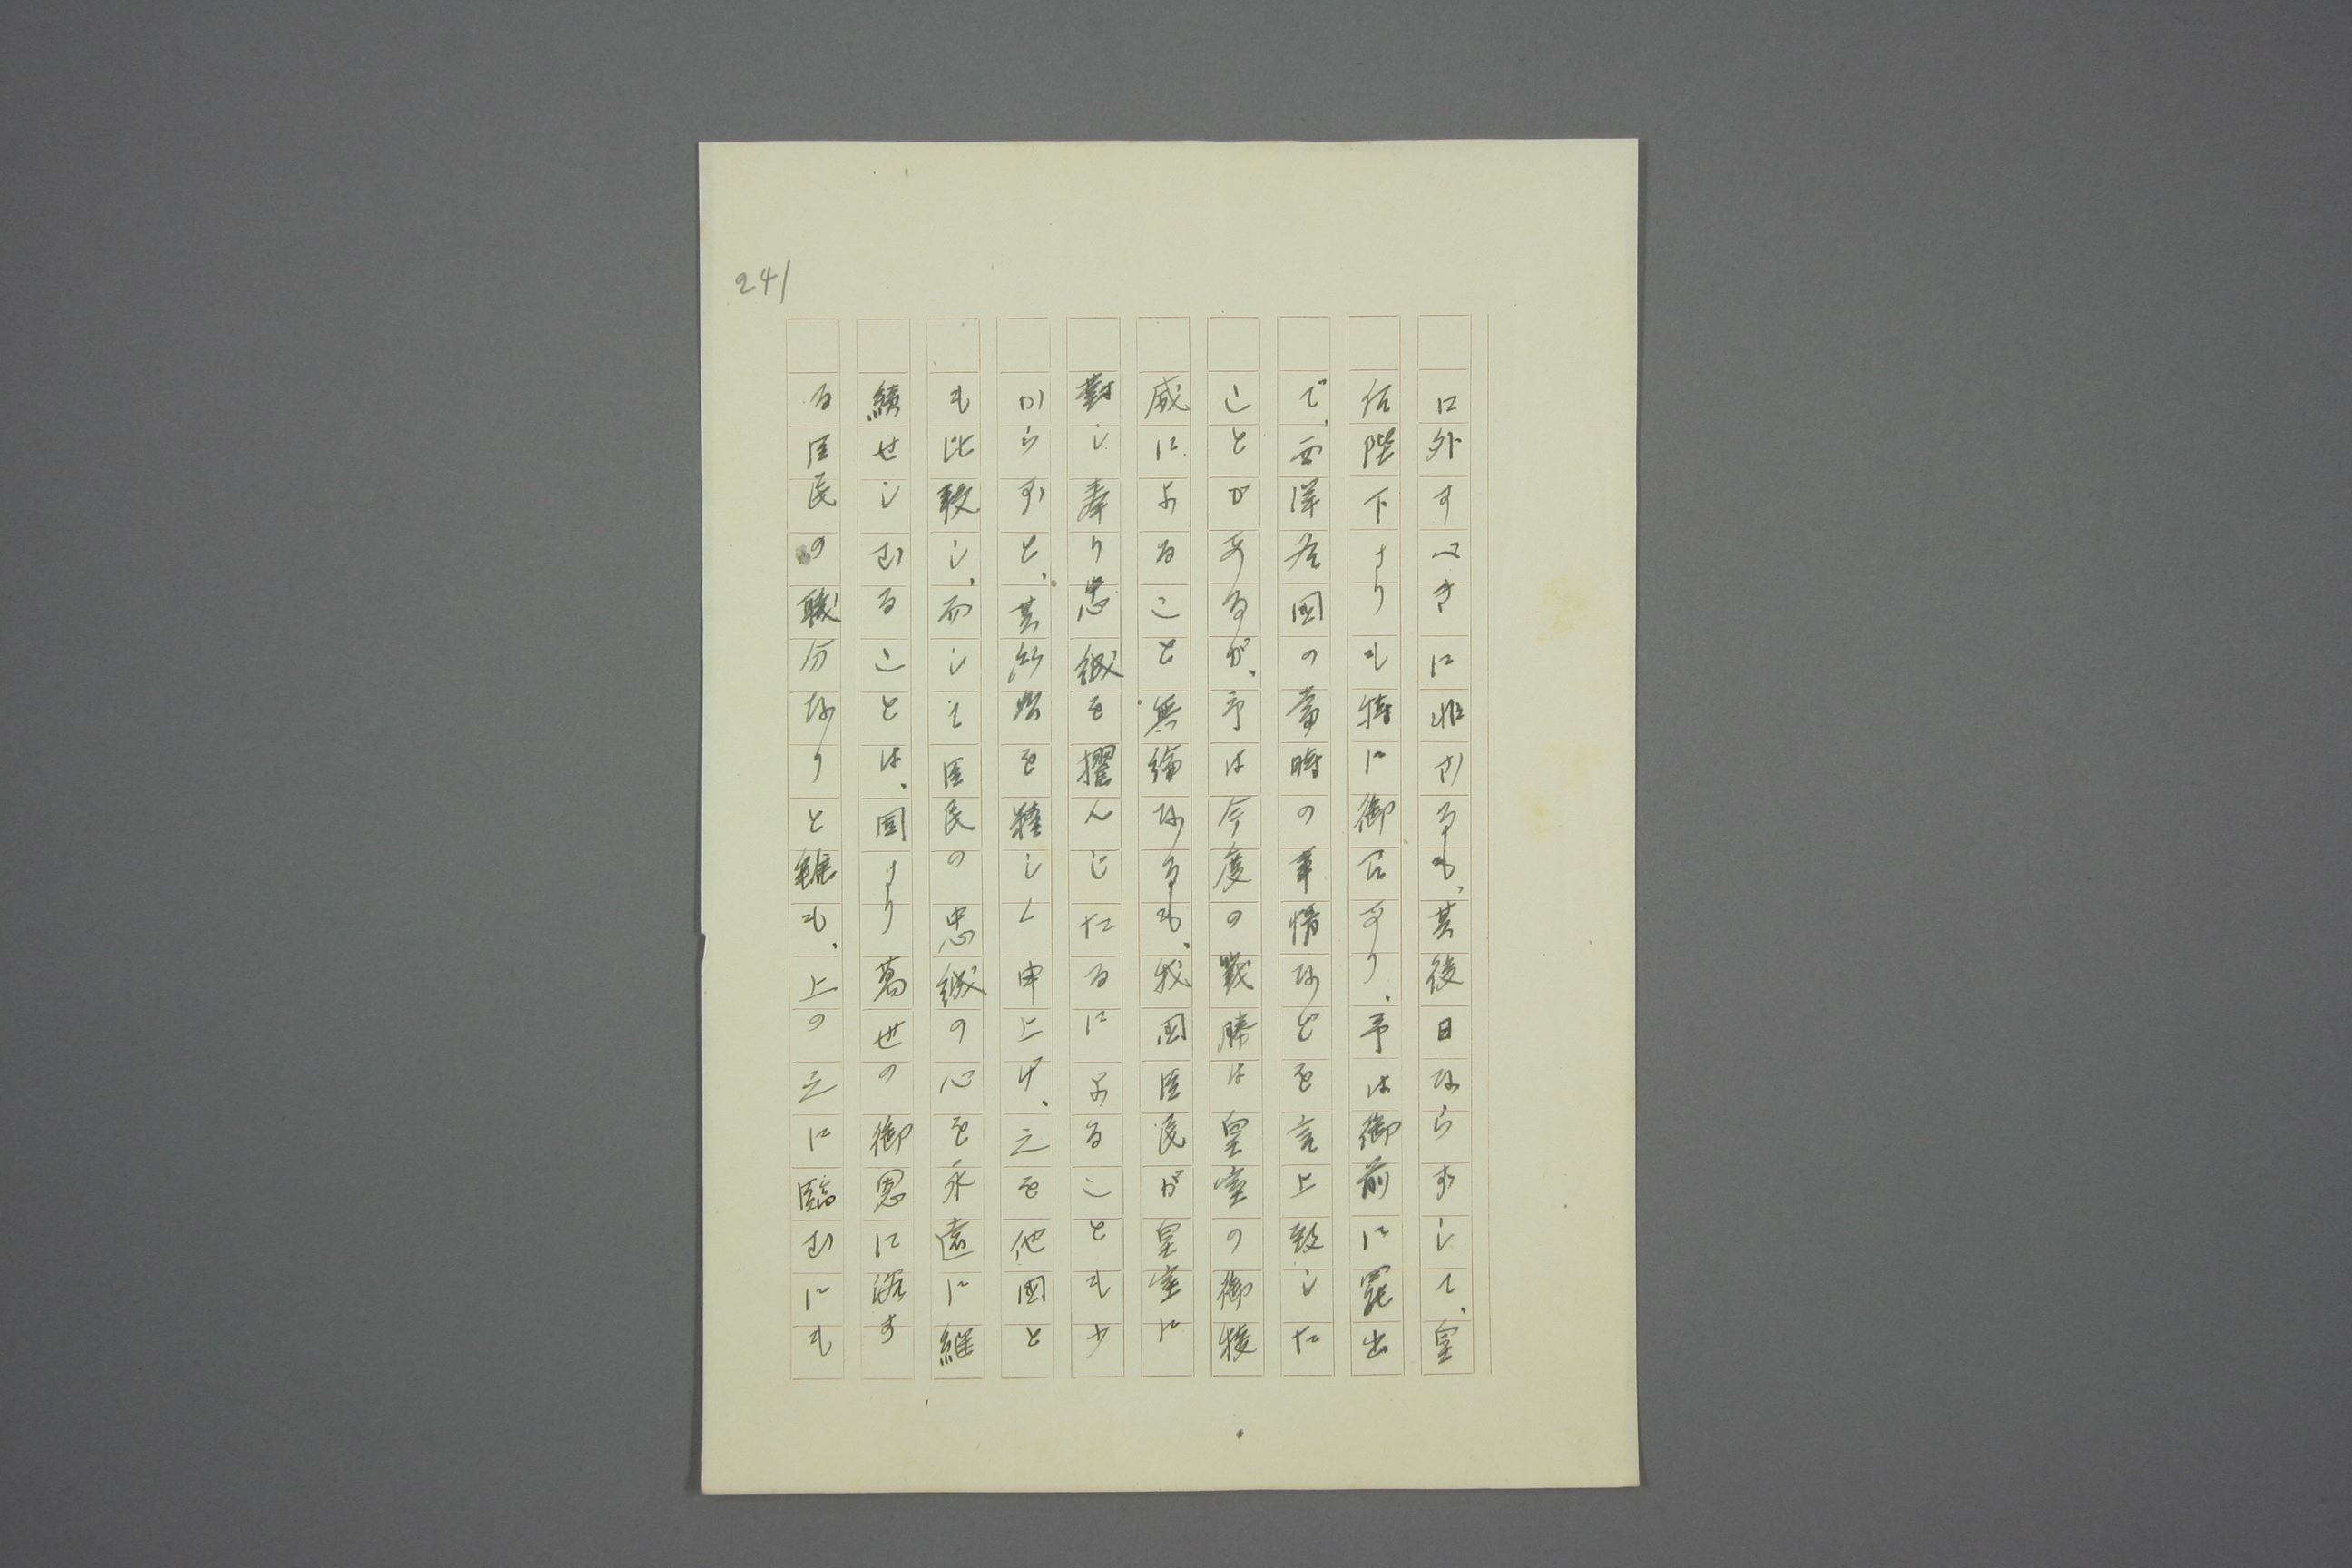 241
に外すべきに非ざるも、其後日ならずして、皇
后陛下よりも特に御召あり、予は御前に罷出
で、西洋各国の當時の事情などを言上致した
ことがあるが、予は今度の戰勝は皇室の御稜
威によること無論なるも、我国臣民が皇室に
對し奉り忠誠を擢んじたるによることも少
からずと、其所以を精しく申上げ、之を他国と
も比較し、而して臣民の忠誠の心を永遠に継
續せしむることは、固より萬世の御恩に浴す
る臣民の職分なりと雖も、上の之に臨むにも